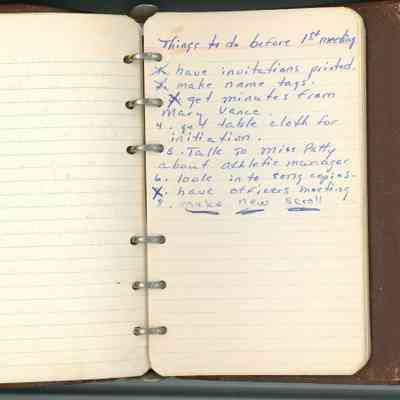 Things to do before 1st meeting
1. have invitations printed.
2. make name tags.
3. get minutes from
Mary Vance.
4. get table cloth for
initiation.
5. Talk to Miss Patty
about athletic manager
6. look in to song copies.
7. have officers meeting
8. make new scroll